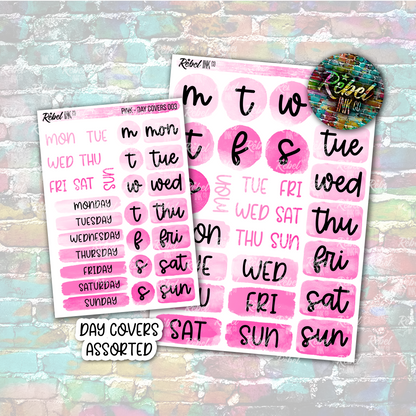 Rebel
INK CO
PINK - DAY COVERS 003
MON TUE
WED THU
FRI SAT
SUN
m mon
t tue
w wed
t thu
f fri
s sat
s sun
MONDAY
TUESDAY
WEDNESDAY
THURSDAY
FRIDAY
SATURDAY
SUNDAY
DAY COVERS
ASSORTED
Rebel
INK CO
m t w
t f s
mon
tue
wed
thu
fri
sat
sun
MON
TUE FRI
WED SAT
THU SUN
WED
FRI
SAT SUN
Rebel
INK CO.